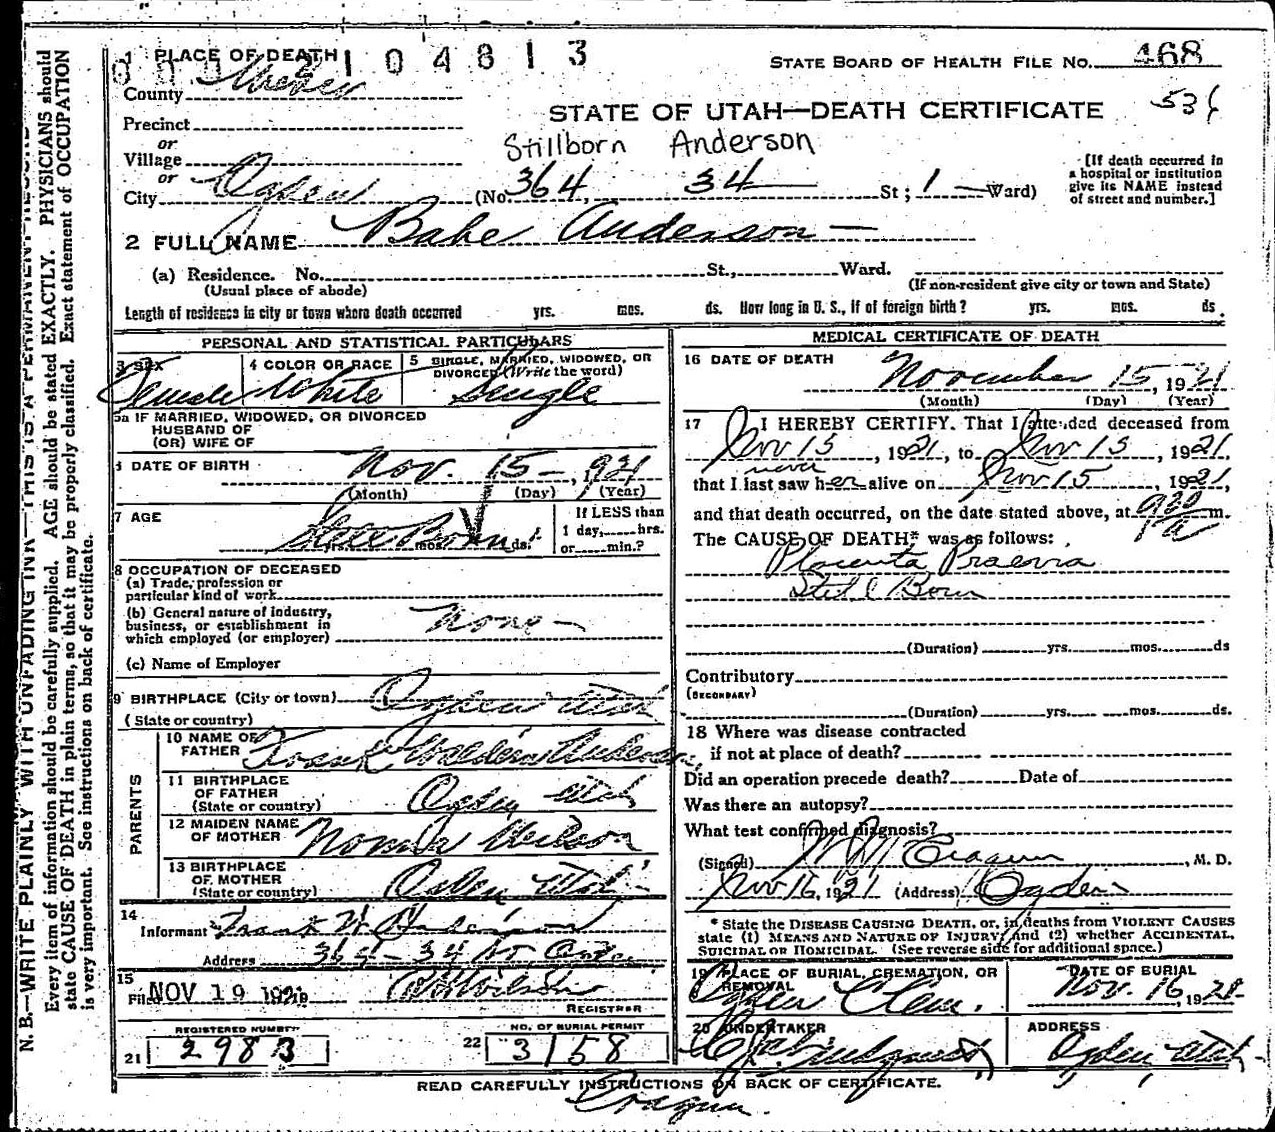 1 PLACE OF DEATH
104813
STATE BOARD OF HEALTH FILE No. 468
County Weber
STATE OF UTAH—DEATH CERTIFICATE
536
Precinct
or
Village
or
City Ogden
Stillborn Anderson
(No. 364, 34 St; 1 Ward)
[If death occurred in
a hospital or institution
give its NAME instead
of street and number.]
2 FULL NAME Babe Anderson
(a) Residence. No. St., Ward.
(Usual place of abode)
(If non-resident give city or town and State)
Length of residence in city or town where death occurred yrs. mos. ds. How long in U. S., if of foreign birth? yrs. mos. ds.
PERSONAL AND STATISTICAL PARTICULARS
3 SEX
Female
4 COLOR OR RACE
White
5 SINGLE, MARRIED, WIDOWED, OR
DIVORCED (Write the word)
Single
5a IF MARRIED, WIDOWED, OR DIVORCED
HUSBAND OF
(OR) WIFE OF
6 DATE OF BIRTH Nov. 15 - 1921
(Month) (Day) (Year)
7 AGE
Still Born
yrs. mos. ds.
If LESS than
1 day, hrs.
or min.?
8 OCCUPATION OF DECEASED
(a) Trade, profession or
particular kind of work
(b) General nature of industry,
business, or establishment in
which employed (or employer) None
(c) Name of Employer
9 BIRTHPLACE (City or town) Ogden Utah
(State or country)
PARENTS
10 NAME OF
FATHER Frank Anderson
11 BIRTHPLACE
OF FATHER
(State or country) Ogden Utah
12 MAIDEN NAME
OF MOTHER Wilson
13 BIRTHPLACE
OF MOTHER
(State or country) Ogden Utah
14
Informant Frank W. Anderson
Address 364 - 34 St
15
Filed NOV 19 1921
REGISTRAR
REGISTERED NUMBER
21 2983
NO. OF BURIAL PERMIT
22 3158
MEDICAL CERTIFICATE OF DEATH
16 DATE OF DEATH
November 15, 1921
(Month) (Day) (Year)
17 I HEREBY CERTIFY. That I attended deceased from
Nov 15, 1921, to Nov 15, 1921,
never
that I last saw her alive on Nov 15, 1921,
and that death occurred, on the date stated above, at 9 30 a m.
The CAUSE OF DEATH* was as follows:
Placenta Praevia
Still Born
(Duration) yrs. mos. ds
Contributory
(SECONDARY)
(Duration) yrs. mos. ds.
18 Where was disease contracted
if not at place of death?
Did an operation precede death? Date of
Was there an autopsy?
What test confirmed diagnosis?
(Signed) Cragun, M. D.
Nov 16, 1921 (Address) Ogden
* State the DISEASE CAUSING DEATH, or, in deaths from VIOLENT CAUSES
state (1) MEANS AND NATURE OF INJURY and (2) whether ACCIDENTAL,
SUICIDAL OR HOMICIDAL. (See reverse side for additional space.)
19 PLACE OF BURIAL, CREMATION, OR
REMOVAL
Ogden Cem.
DATE OF BURIAL
Nov. 16, 1921
20 UNDERTAKER
Lindquist
ADDRESS
Ogden Utah
READ CAREFULLY INSTRUCTIONS ON BACK OF CERTIFICATE.
Cragun.
N. B.—WRITE PLAINLY WITH UNFADING INK—THIS IS A PERMANENT RECORD
Every item of information should be carefully supplied. AGE should be stated EXACTLY. PHYSICIANS should
state CAUSE OF DEATH in plain terms, so that it may be properly classified. Exact statement of OCCUPATION
is very important. See instructions on back of certificate.